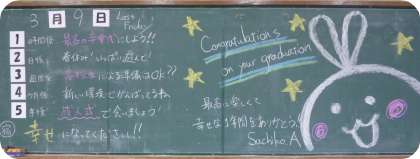 3月9日 Last Friday
1 時間後 最高の卒業式にしよう!!
2 日後 春休みいっぱい遊んで!
3 週間後 による準備はOK??
4 か月後 新しい環境でがんばってるね
5 年後 成人式で会いましょう!
幸せになってください!!
Congratulations
on your graduation
最高に楽しくて
幸せな1年間をありがとう!
Sachiko.A